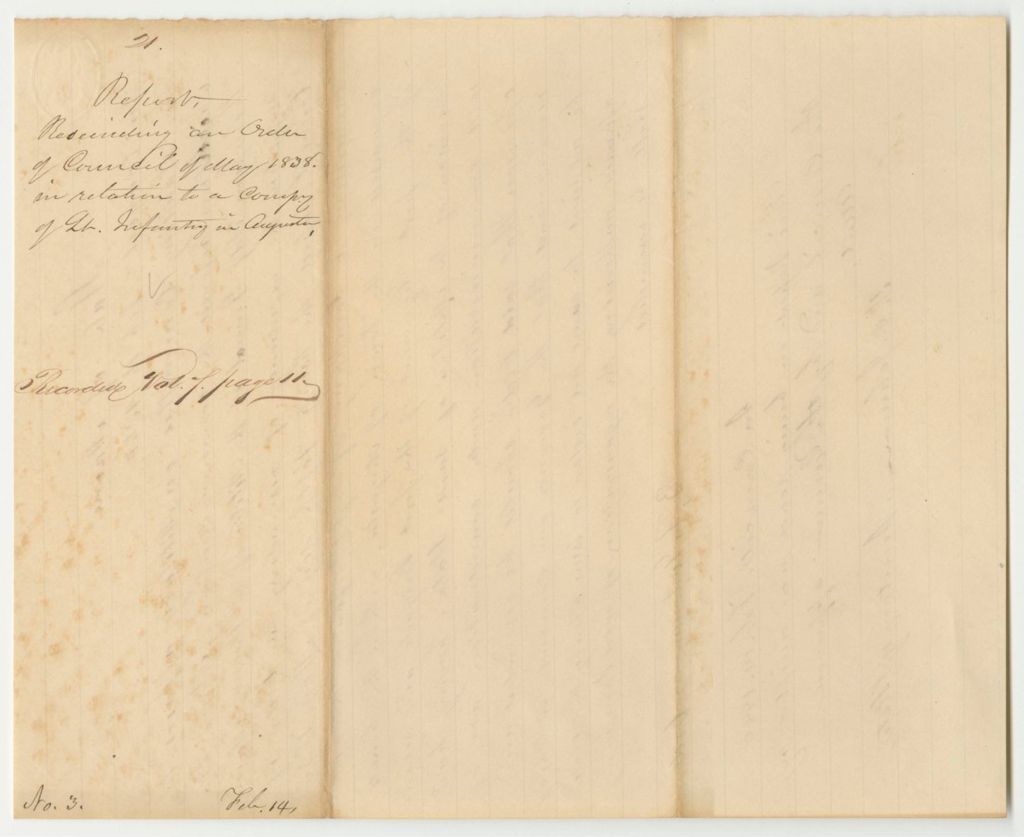 21.
Report,
Rescinding an Order
of Council of May 1838.
in relation to a Compy
of Lt. Infantry in Augusta,
Recorded Vol. 7. page 11.
No. 3.
Feb. 14,